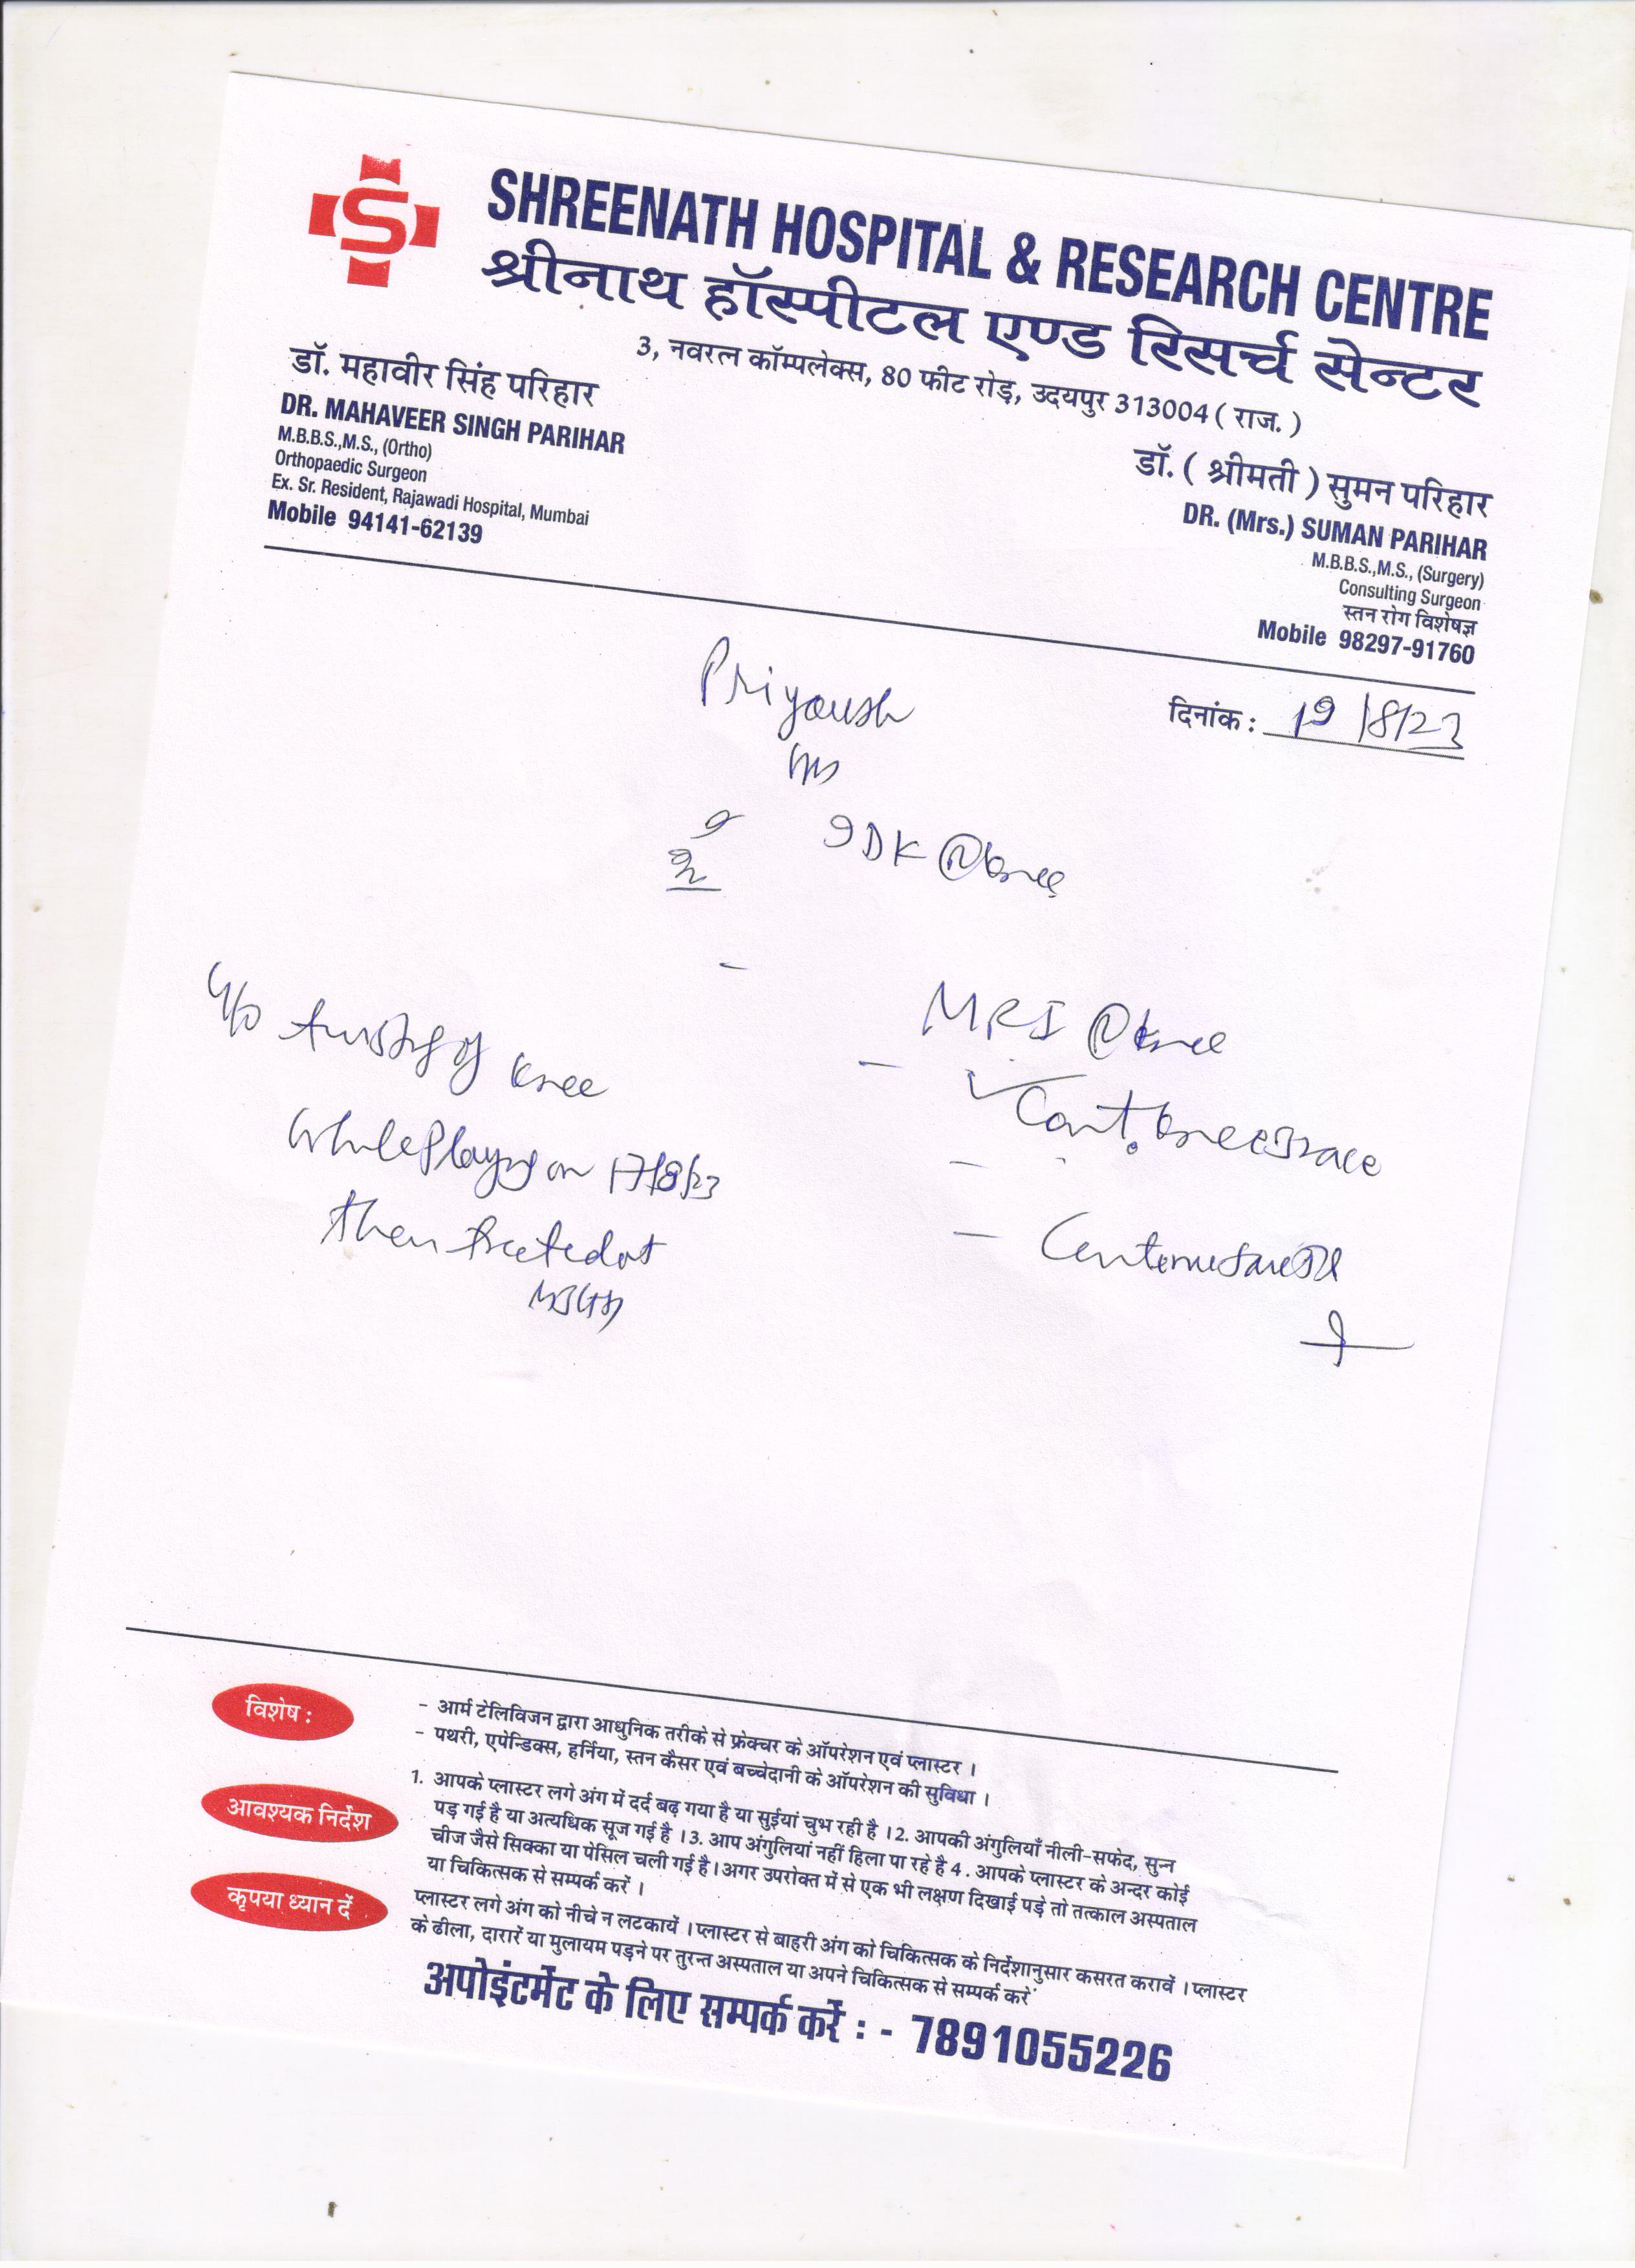 SHREENATH HOSPITAL & RESEARCH CENTRE
श्रीनाथ हॉस्पीटल एण्ड रिसर्च सेन्टर
3, नवरत्न कॉम्पलेक्स, 80 फीट रोड़, उदयपुर 313004 ( राज. )
डॉ. महावीर सिंह परिहार
DR. MAHAVEER SINGH PARIHAR
M.B.B.S.,M.S., (Ortho)
Orthopaedic Surgeon
Ex. Sr. Resident, Rajawadi Hospital, Mumbai
Mobile 94141-62139
डॉ. ( श्रीमती ) सुमन परिहार
DR. (Mrs.) SUMAN PARIHAR
M.B.B.S.,M.S., (Surgery)
Consulting Surgeon
स्तन रोग विशेषज्ञ
Mobile 98297-91760
दिनांक : 19/8/23
Priyoush
IDK (R) knee
H/o twisting of knee
while playing on 17/8/23
then treated at
MBGH
- MRI (R) knee
- Cont. knee brace
- Continue same Rx
विशेष :
- आर्म टेलिविजन द्वारा आधुनिक तरीके से फ्रेक्चर के ऑपरेशन एवं प्लास्टर ।
- पथरी, एपेन्डिक्स, हर्निया, स्तन कैसर एवं बच्चेदानी के ऑपरेशन की सुविधा ।
आवश्यक निर्देश
1. आपके प्लास्टर लगे अंग में दर्द बढ़ गया है या सुईयां चुभ रही है । 2. आपकी अंगुलियाँ नीली-सफेद, सुन्न
पड़ गई है या अत्यधिक सूज गई है । 3. आप अंगुलियां नहीं हिला पा रहे है 4 . आपके प्लास्टर के अन्दर कोई
चीज जैसे सिक्का या पेसिल चली गई है। अगर उपरोक्त में से एक भी लक्षण दिखाई पड़े तो तत्काल अस्पताल
या चिकित्सक से सम्पर्क करें ।
कृपया ध्यान दें
प्लास्टर लगे अंग को नीचे न लटकायें । प्लास्टर से बाहरी अंग को चिकित्सक के निर्देशानुसार कसरत करावें । प्लास्टर
के ढीला, दारारें या मुलायम पड़ने पर तुरन्त अस्पताल या अपने चिकित्सक से सम्पर्क करें
अपोइंटमेंट के लिए सम्पर्क करें : - 7891055226